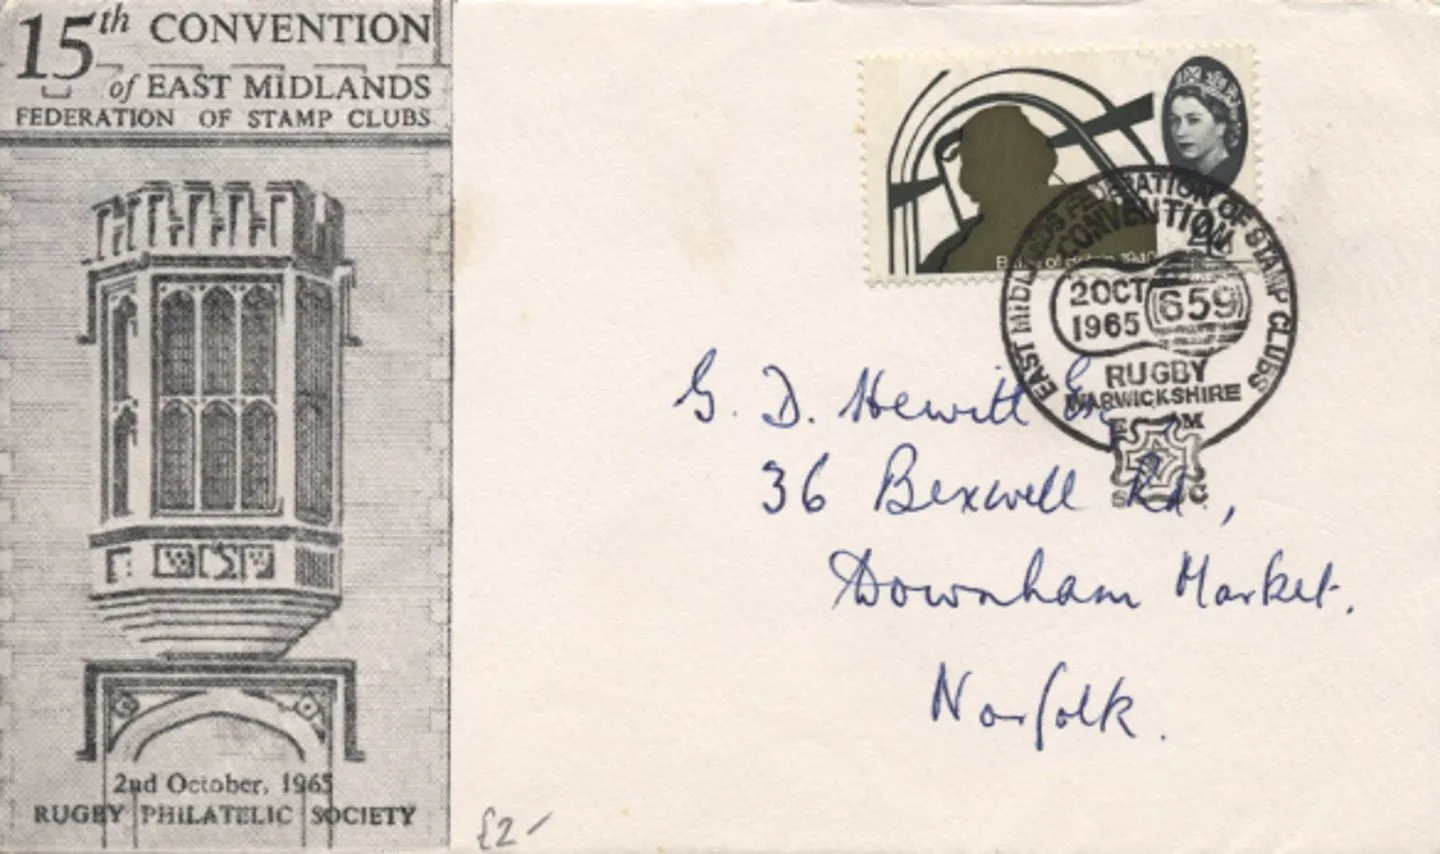 15th CONVENTION
of EAST MIDLANDS
FEDERATION OF STAMP CLUBS
2nd October, 1965
RUGBY PHILATELIC SOCIETY
£2-
Battle of Britain 1940
4d
EAST MIDLANDS FEDERATION OF STAMP CLUBS
CONVENTION
2 OCT
1965
659
RUGBY
WARWICKSHIRE
G. D. Hewitt Esq
36 Bexwell Rd,
Downham Market.
Norfolk.